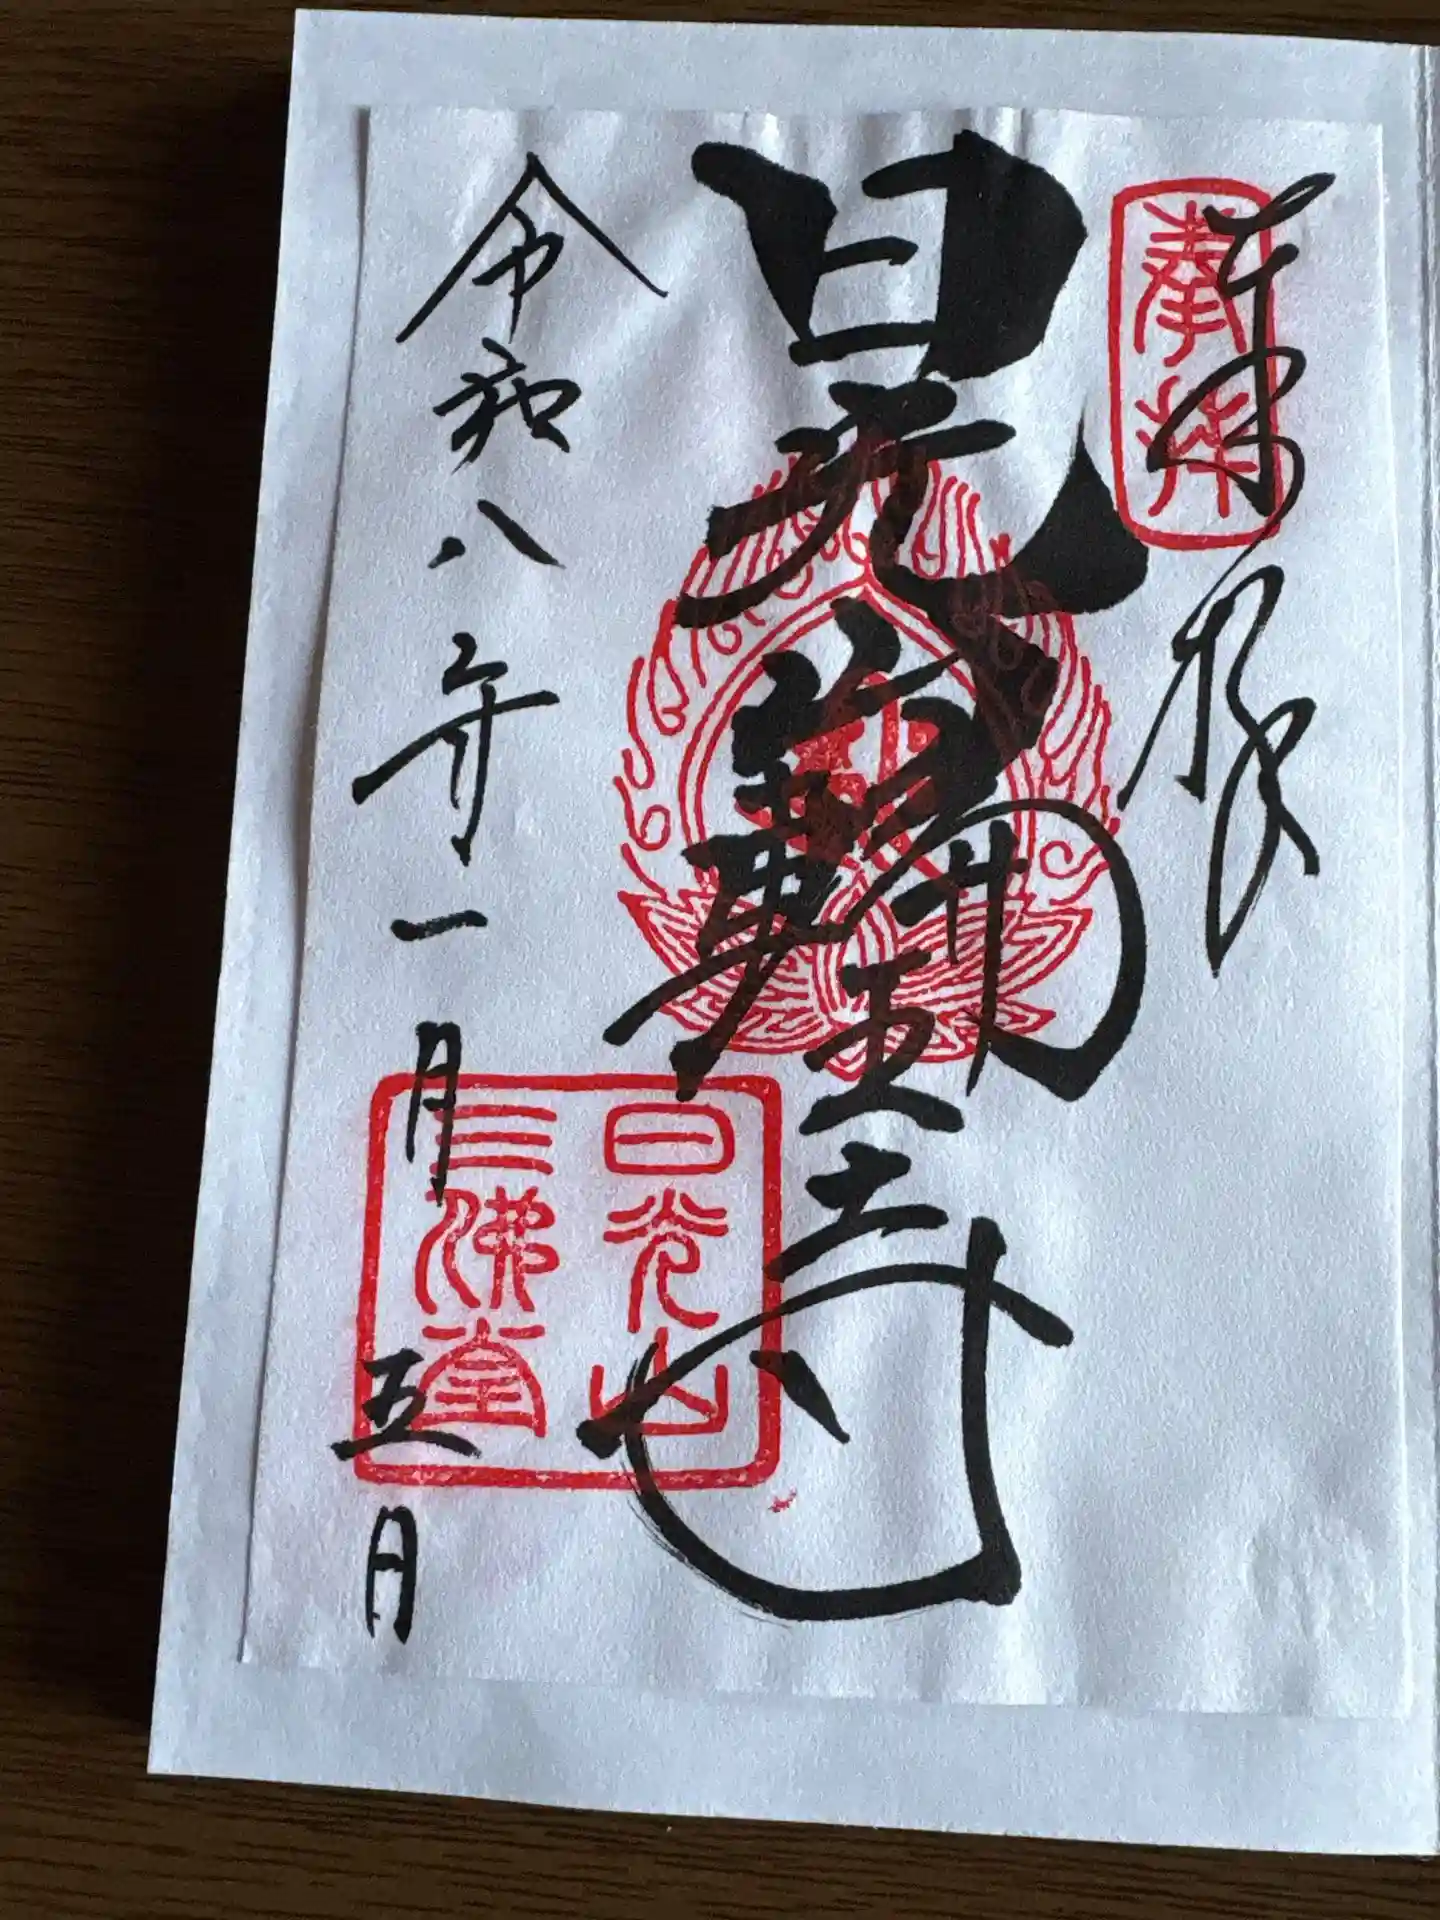 奉拝
奉拝
日光山輪王寺
日光山
三佛堂
令和八年一月五日